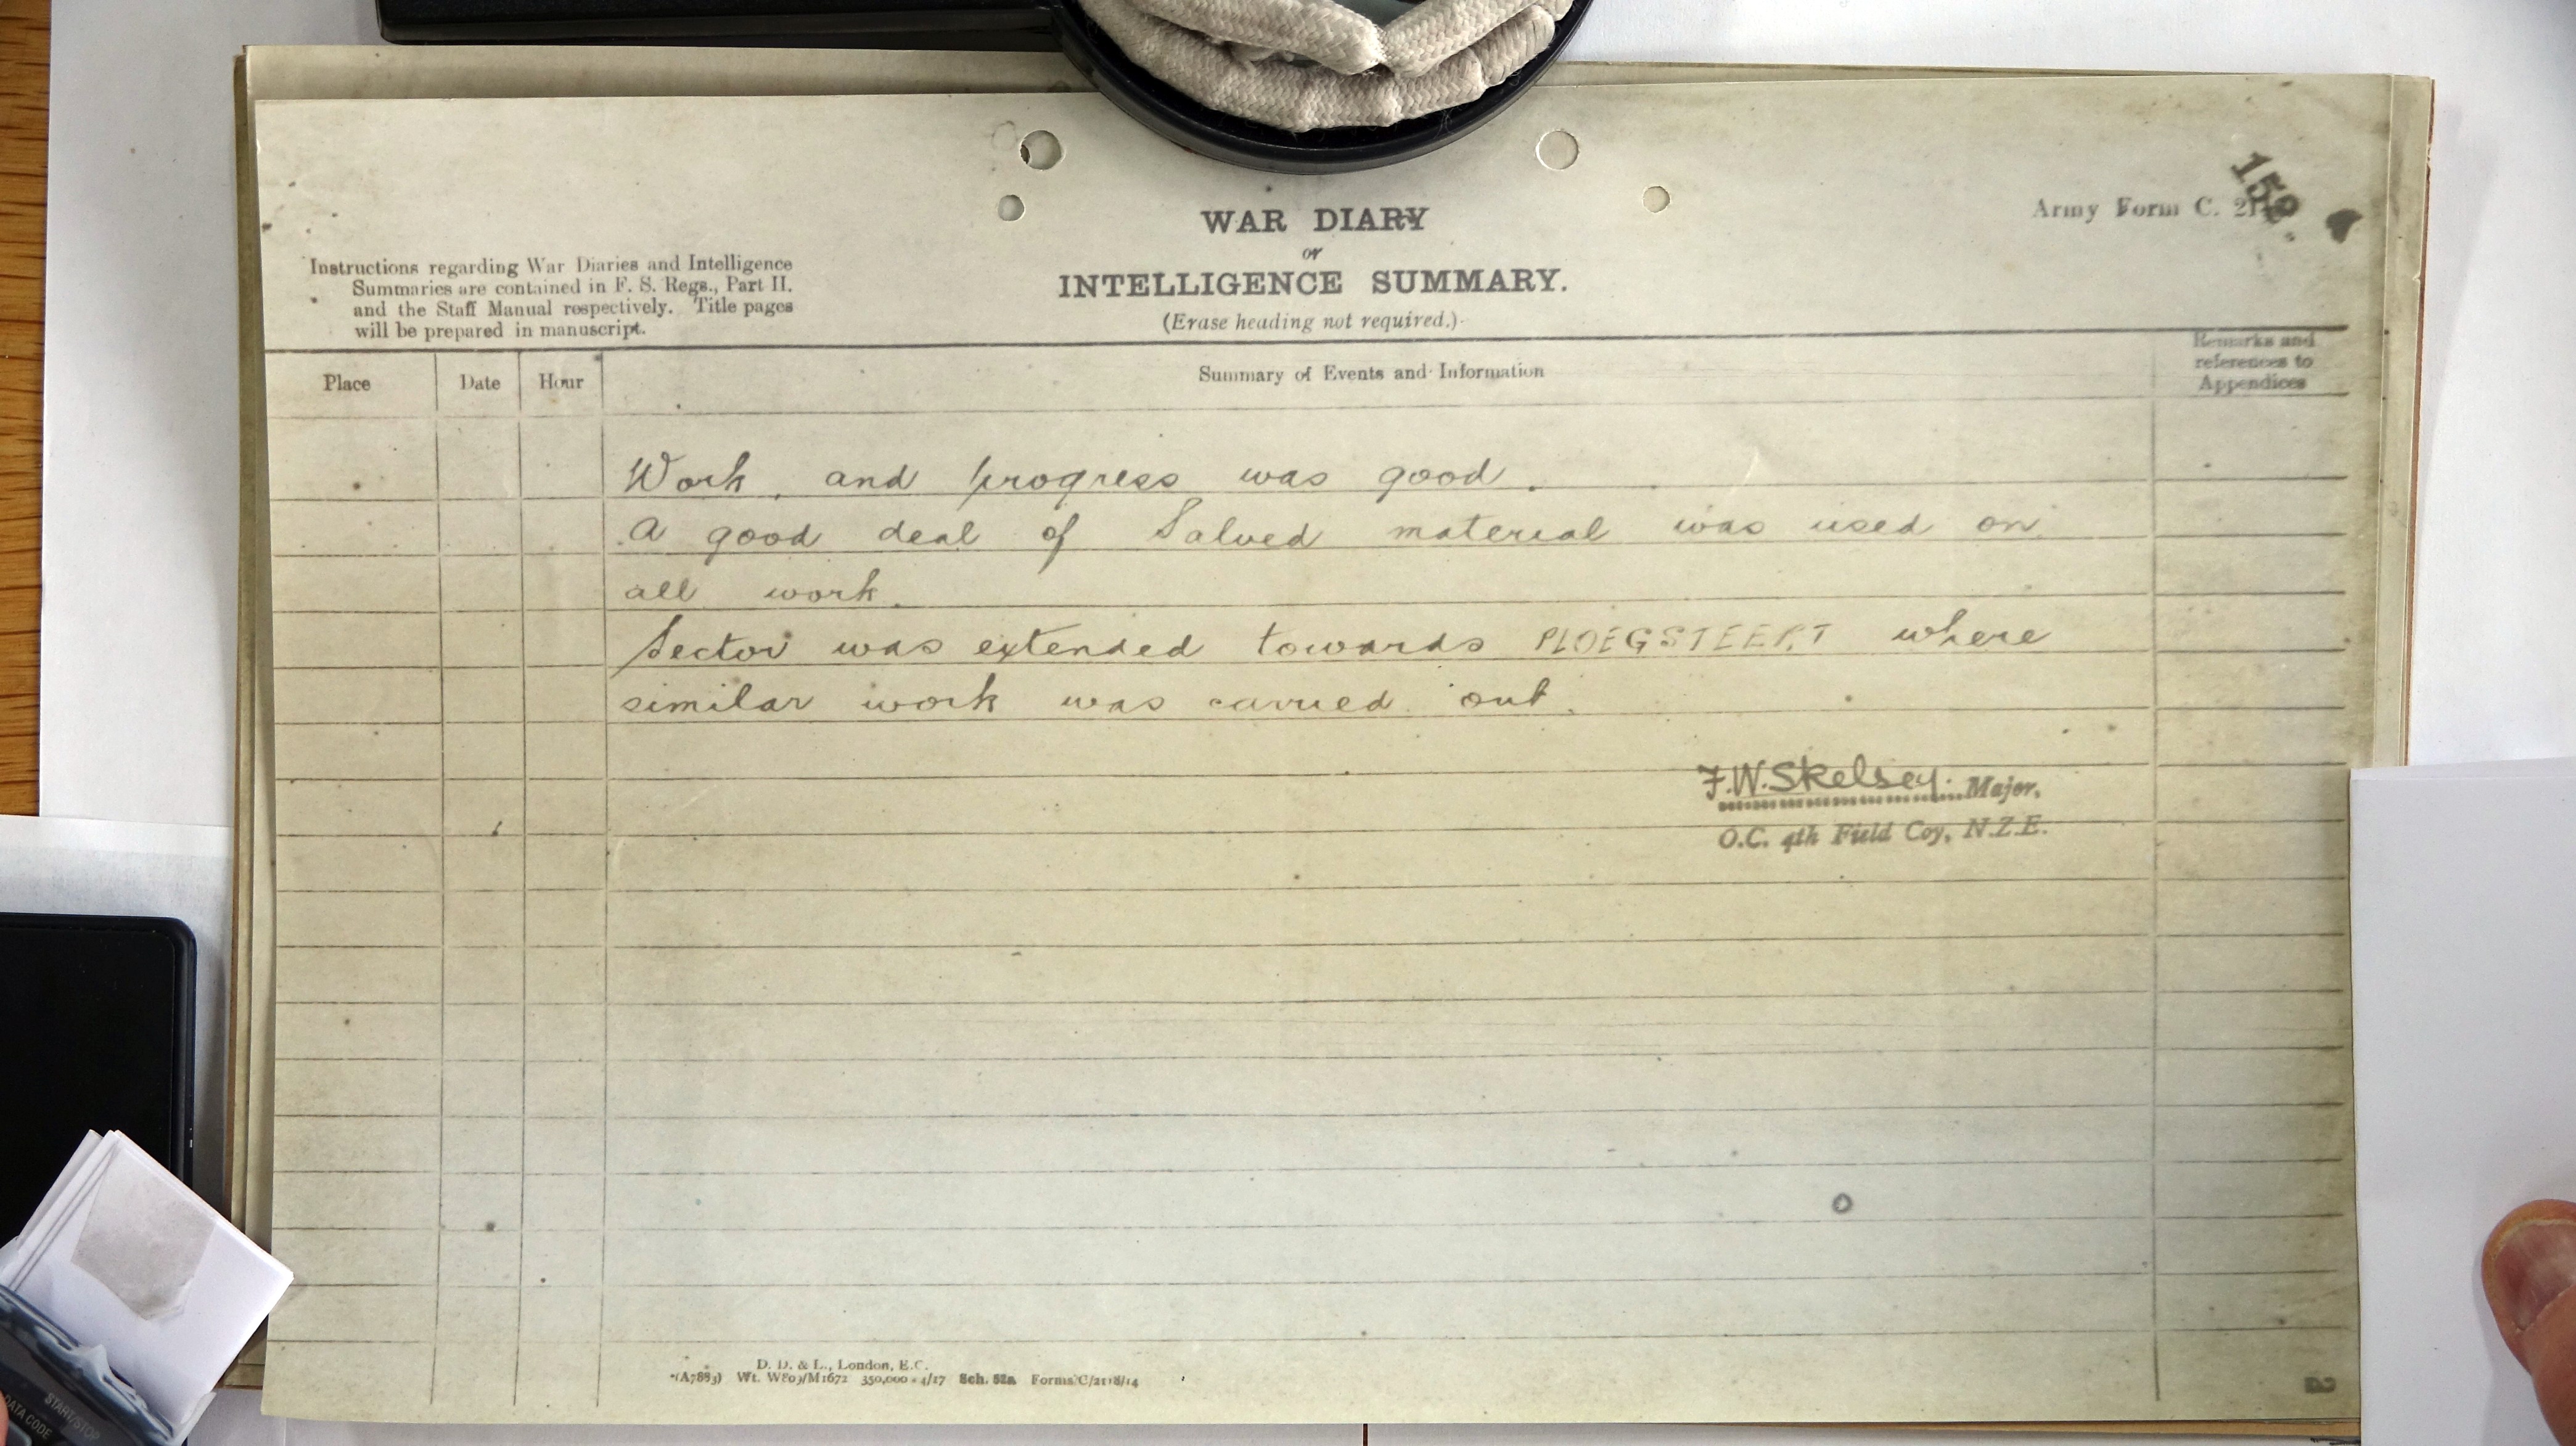 158
Army Form C.
WAR DIARY
or
INTELLIGENCE SUMMARY.
(Erase heading not required.)
Instructions regarding War Diaries and Intelligence
Summaries are contained in F. S. Regs., Part II.
and the Staff Manual respectively. Title pages
will be prepared in manuscript.
Place Date Hour Summary of Events and Information Remarks and
references to
Appendices
Work, and progress was good.
A good deal of Salved material was used on
all work.
Sector was extended towards PLOEGSTEERT where
similar work was carried out.
F.W. Skelsey. Major.
O.C. 4th Field Coy, N.Z.E.
D. D. & L., London, E.C.
(A7883) Wt. W809/M1672 350,000 4/17 Sch. 52a Forms/C/2118/14
START/STOP
DATA CODE